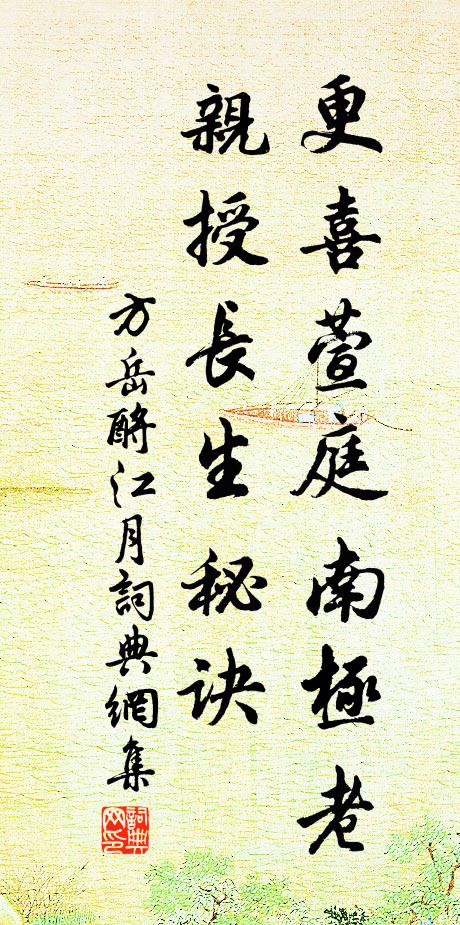 更喜萱庭南極老
親授長生秘訣
方岳酹江月詞典網集
詞典网印